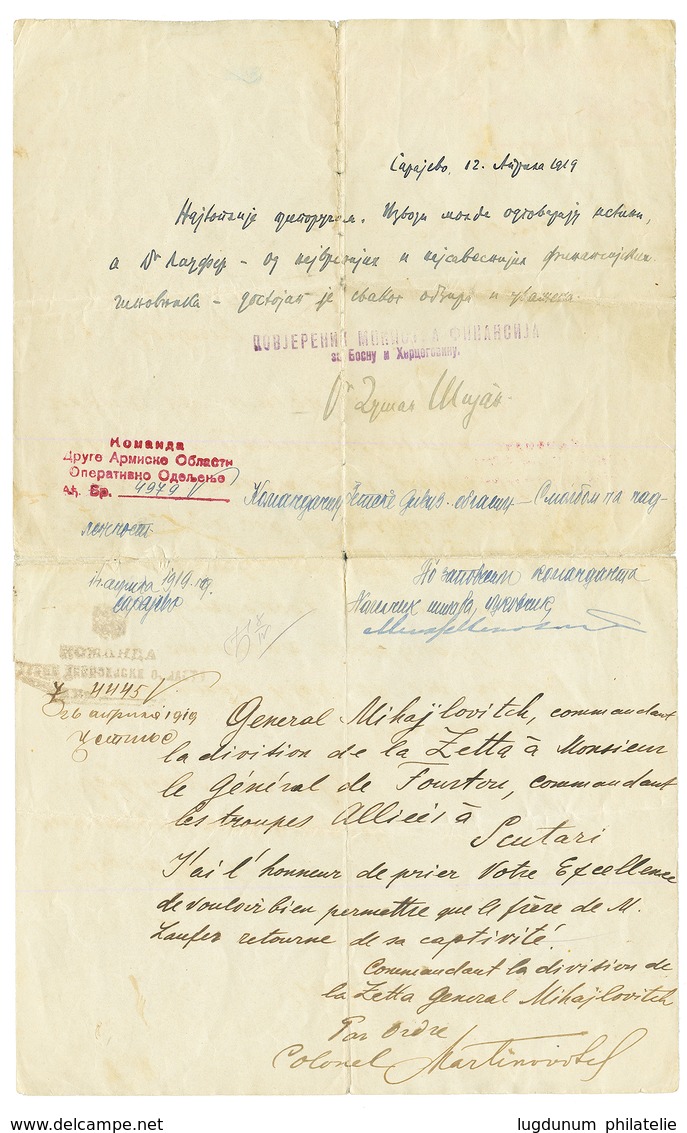 Сарајево, 12. Априла 1919
Најтоплије препоручам. Изводи молбе одговарају истини,
а Dr Лауфер – од највреднијих и најсавеснијих финансијских
чиновника – достојан је сваког обзира и
ПОВЈЕРЕНИК МИНИСТРА ФИНАНСИЈА
за Босну и Херцеговину.
Dr Душан
Команда
Друге Армиске Области
Оперативно Одељење
Ађ. Бр. 4979
Команданту Зетске Дивиз. области – с молбом на над-
лежност
14 априла 1919. год.
Сарајево
По заповести команданта
Начелник штаба, пуковник,
КОМАНДА
4445
26 априла 1919
Цетиње
General Mihajlovitch, commandant
la division de la Zetta à Monsieur
le Général de Fourtou, commandant
les troupes Alliées à
Scutari
J'ai l'honneur de prier Votre Excellence
de vouloir bien permettre que le frère de M.
Laufer retourne de sa captivité.
Commandant la division de
la Zetta General Mihajlovitch
Par ordre
Colonel Martinovitch
delcampe.net
lugdunum philatelie